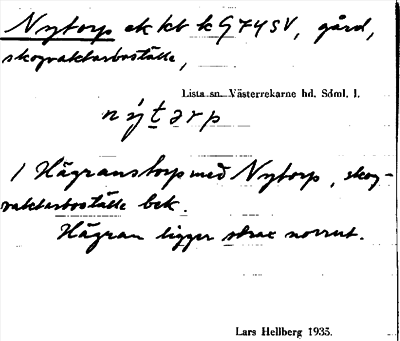 Nytorp ek kbl k G74SV, gård,
skogvaktarboställe,
Lista sn. Västerrekarne hd. Sdml. l.
nýtərp
/ Hägranstorp med Nytorp, skog-
vaktarboställe bek.
Hägran ligger strax norrut.
Lars Hellberg 1935.